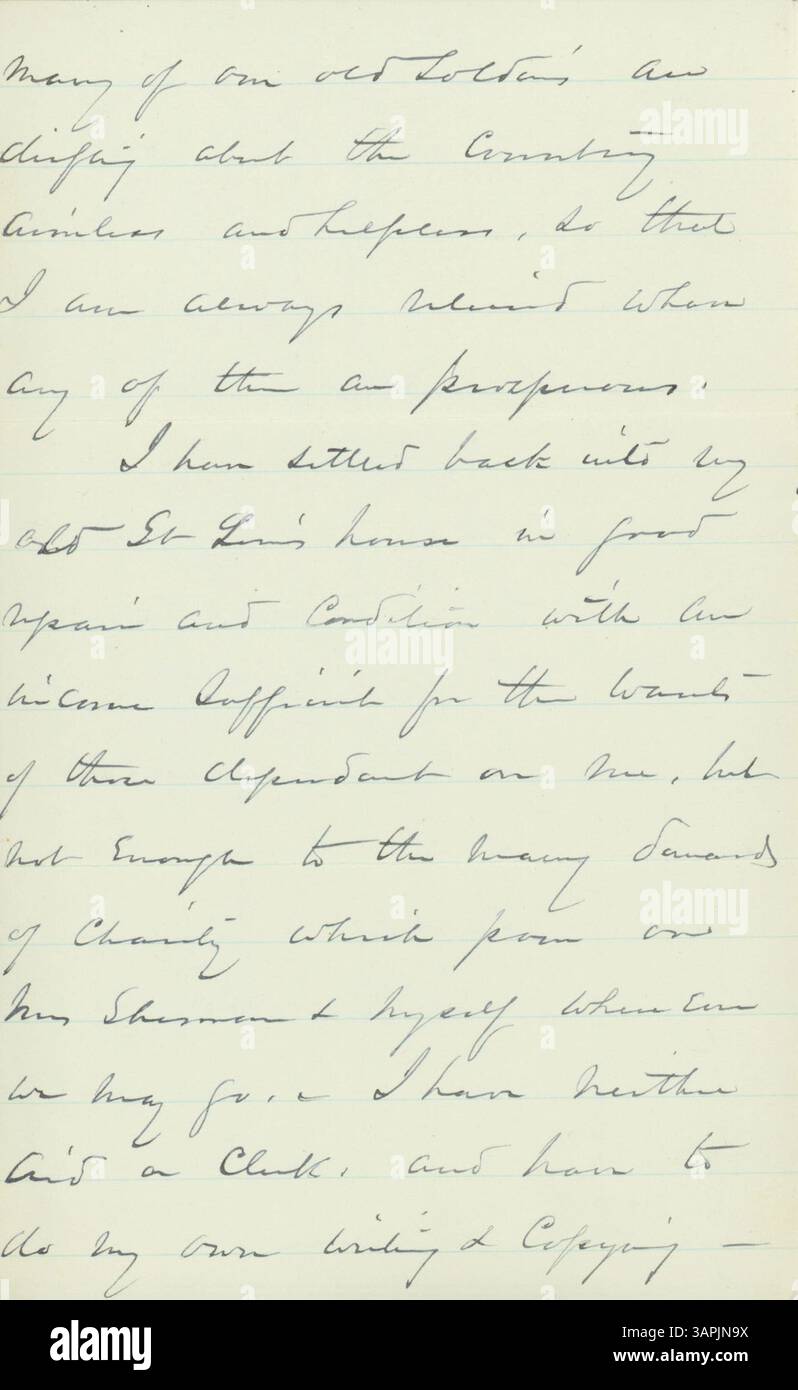 Many of our old Soldiers are
drifting about the Country
aimless and helpless, so that
I am always relieved when
any of them are prosperous.
I have settled back into my
old St Louis house in good
repair and Condition with an
income sufficient for the wants
of those dependant on me, but
not Enough to the many demands
of Charity which pour on
Mrs Sherman & Myself where Ever
we may go. - I have neither
Aid or Clerk, and have to
do my own writing & Copying -
alamy
Image ID: 3APJN9X
www.alamy.com